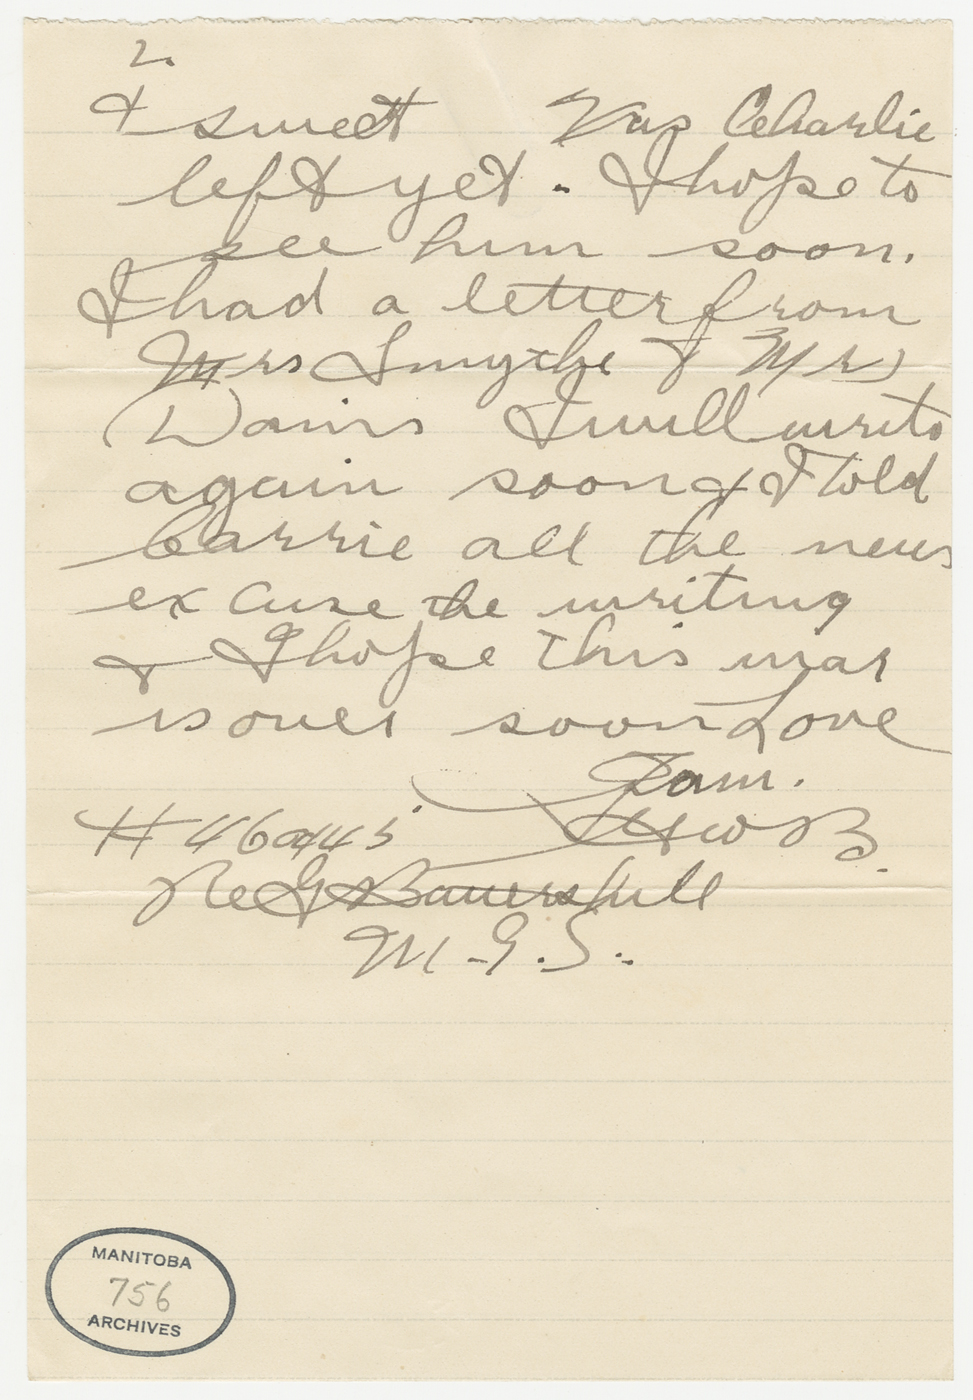 2.
& sweet Has Charlie
left yet. I hope to
see him soon.
I had a letter from
Mrs Smythe & Mrs
Davis I will write
again soon & I told
Carrie all the news
excuse the writing
& I hope this war
is over soon Love
Sam.
H W B.
H 46
M.G.S.
MANITOBA
756
ARCHIVES